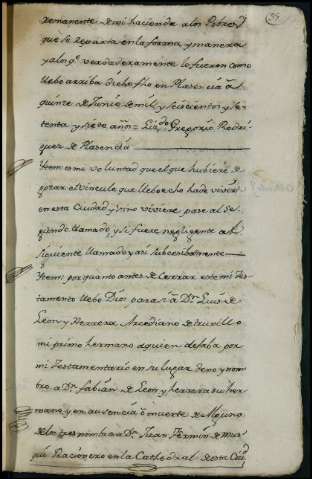 remanente de mi hacienda a los Pobres, y
que se reparta en la forma, y manera
y a los q.e verdaderamente lo fueren como
llebo arriba dicho fho en Plasencia a
quince de Junio de mil y seiscientos y se-
tenta y siete años = Liz.do Gregorio Rodri
guez de Plasencia
Item como voluntad que el que hubiere de
goztar el vinculo que llebo dho ha de vivir
en esta Ciudad, y si no viviere pase al se-
gundo llamado, y si fuere negligente al
siguiente llamado y asi subcesibamente
Item: por quanto antes de Cerrar este mi tes-
tamento llebo Dios para si a D.n Luis de
Leon y Herrera Arcediano de truxillo
mi primo hermano a quien dejaba por
mi testamentario en su lugar deno y nom
bro a D.n fabian de Leon y herrera su her
mano, y en ausencia o muerte de alguno
de los tres nombro a D.n Juan fermin de
Racionero en la Cathedral de esta Ciu.d